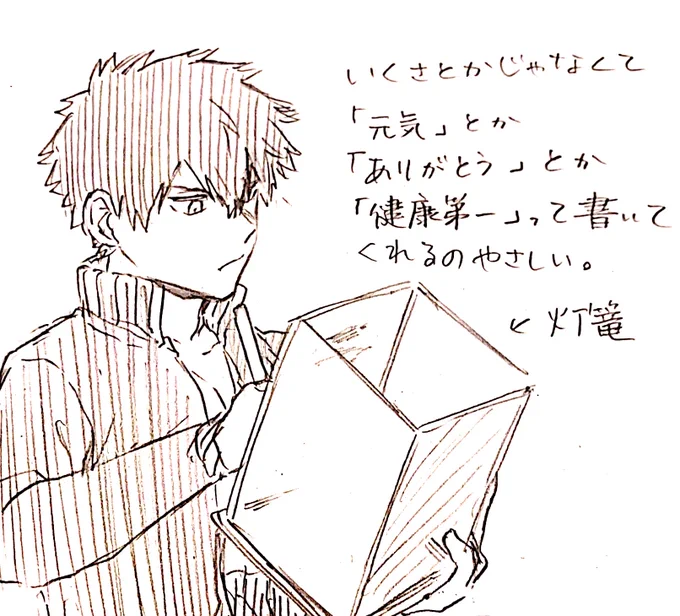 いくさとかじゃなくて
「元気」とか
「ありがとう」とか
「健康第一」って書いて
くれるのやさしい。
← 灯篭